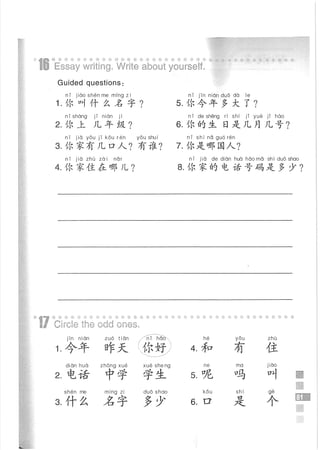 16 Essay writing. Write about yourself.
Guided questions:
nǐ jiào shén me míng zi
1. 你叫什么名字?
nǐ jīn nián duō dà le
5. 你今年多大了?
nǐ shàng jǐ nián jí
2. 你上几年级?
nǐ de shēng rì shì jǐ yuè jǐ hào
6. 你的生日是几月几号?
nǐ jiā yǒu jǐ kǒu rén yǒu shuí
3. 你家有几口人?有谁?
nǐ shì nǎ guó rén
7. 你是哪国人?
nǐ jiā zhù zài nǎr
4. 你家住在哪儿?
nǐ jiā de diàn huà hào mǎ shì duō shao
8. 你家的电话号码是多少?
17 Circle the odd ones.
jīn nián zuó tiān nǐ hǎo
1. 今年 昨天 你好
hé yǒu zhù
4. 和 有 住
diàn huà zhōng xué xué sheng
2. 电话 中学 学生
ne ma jiào
5. 呢 吗 叫
shén me míng zi duō shao
3. 什么 名字 多少
kǒu shì gè
6. 口 是 个
81